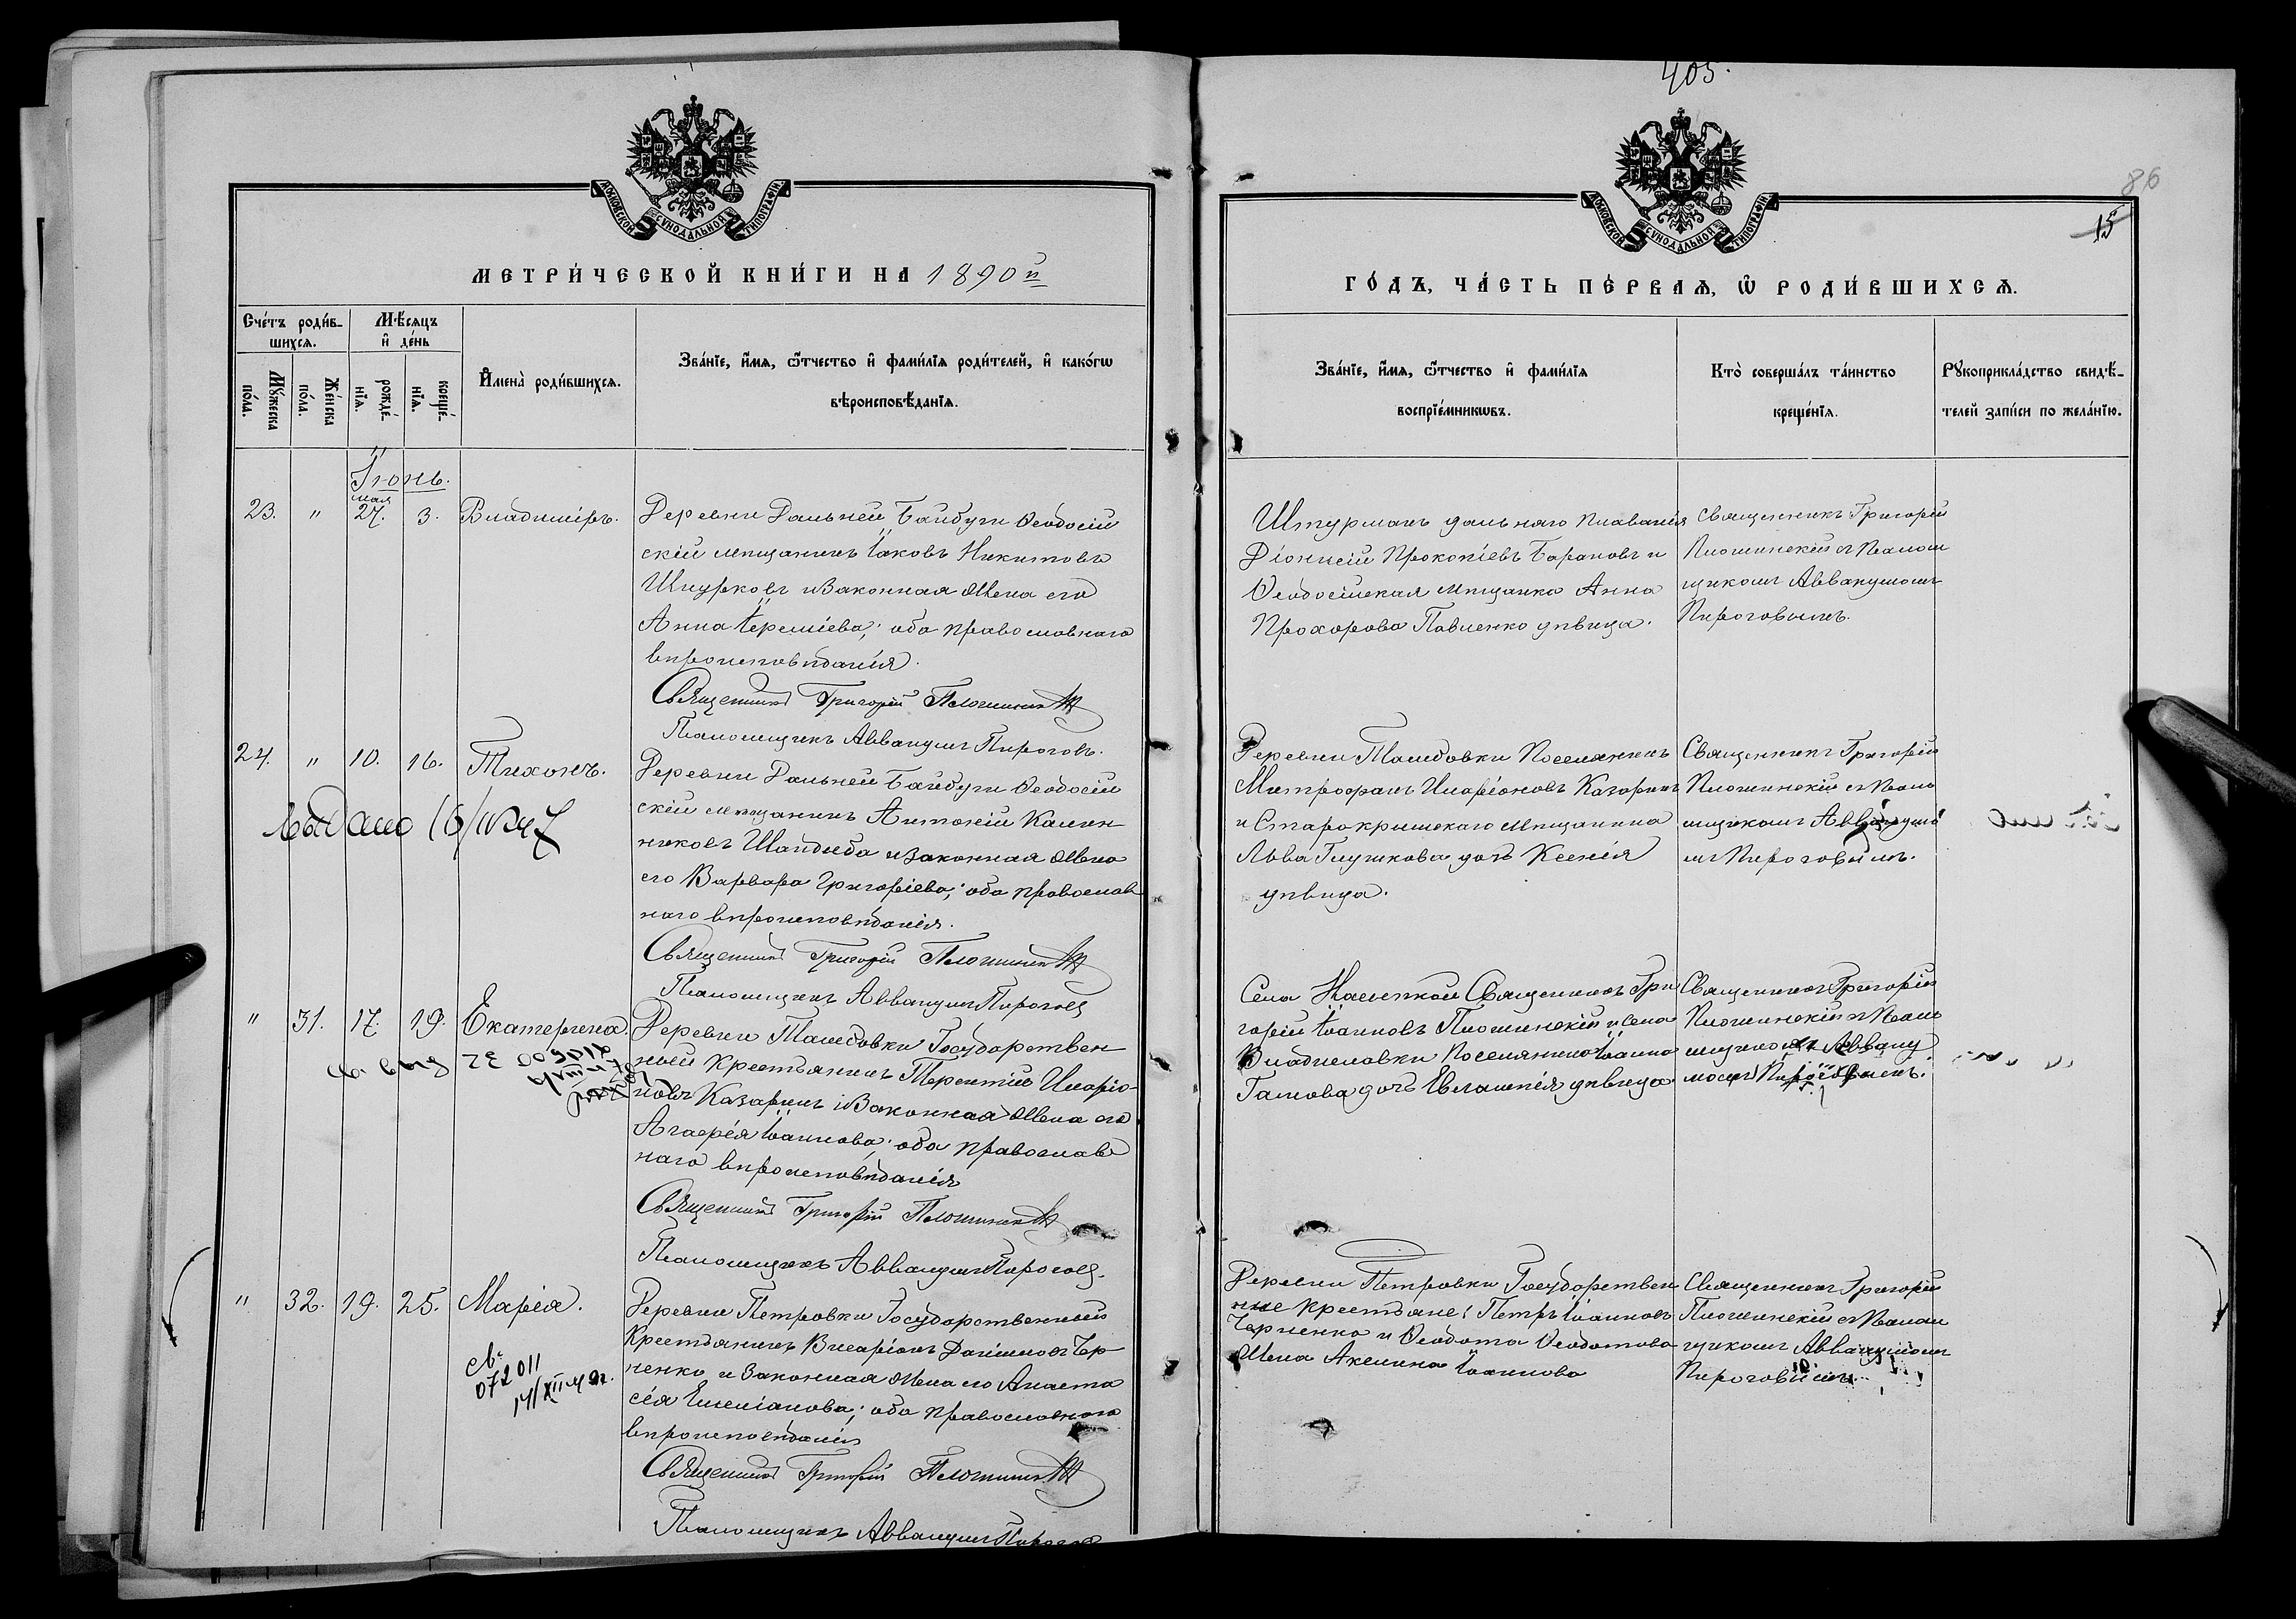 МОСКОВСКОЙ СУНОДАЛЬНОЙ ТИПОГРАФІИ
МЕТРИ́ЧЕСКОЙ КНИ́ГИ НА 1890й
Сче́тъ роди́в-
шихсѧ.
Мѣ́сѧцъ
и҆ де́нь
Мꙋ́жеска
по́ла.
Же́нска
по́ла.
рожде́-
нїѧ.
креще́-
нїѧ.
И҆мена̀ роди́вшихсѧ.
Зва́нїе, и҆́мѧ, ѻ҆́тчество и҆ фами́лїѧ роди́телей, и҆ како́гѡ
вѣроисповѣ́данїѧ.
Іюнь.
23. " мая 27. 3. Владиміръ.
Деревни Дальней Байбуги Ѳеодосій
скій мѣщанинъ Іаковъ Никитовъ
Шнурковъ и законная жена его
Анна Іереміева; оба православнаго
вѣроисповѣданія.
Священникъ Григорій Плошинскій
Псаломщикъ Аввакумъ Пироговъ.
24. " 10. 16. Тихонъ.
Выдано
Деревни Дальней Байбуги Ѳеодосій
скій мѣщанинъ Антоній Калин
никовъ и законная жена
его Варвара Григоріева; оба православ
наго вѣроисповѣданія.
Священникъ Григорій Плошинскій
Псаломщикъ Аввакумъ Пироговъ
" 31. 17. 19. Екатерина.
Деревни Ташковки Государствен
ный крестьянинъ Терентій Иларіо
новъ Казаринъ и законная жена его
Агафія Іоаннова; оба православ
наго вѣроисповѣданія
Священникъ Григорій Плошинскій
Псаломщикъ Аввакумъ Пироговъ.
" 32. 19. 25. Марія.
св.
072011
Деревни Петровки Государственный
крестьянинъ Висаріонъ Даніиловъ Чер
ненко и законная жена его Анаста
сія Емеліанова; оба православнаго
вѣроисповѣданія
Священникъ Григорій Плошинскій
Псаломщикъ Аввакумъ Пироговъ
405.
86
15
МОСКОВСКОЙ СУНОДАЛЬНОЙ ТИПОГРАФІИ
ГО́ДЪ, ЧА́СТЬ ПЕ́РВАѦ, Ѡ҆ РОДИ́ВШИХСѦ.
Зва́нїе, и҆́мѧ, ѻ҆́тчество и҆ фами́лїѧ
воспрїе́мникѡвъ.
Кто̀ соверша́лъ та́инство
креще́нїѧ.
Рꙋкоприкла́дство свидѣ́-
телей за́писи по жела́нїю.
Штурманъ дальняго плаванія
Діонисій Прокопіевъ Барановъ и
Ѳеодосійская мѣщанка Анна
Прохорова Павленко дѣвица.
Священникъ Григорій
Плошинскій съ Псалом
щикомъ Аввакумомъ
Пироговымъ.
Деревни Ташковки поселянинъ
Митрофанъ Иларіоновъ Казаринъ
и Старокрымскаго мѣщанина
Льва Глушкова дочь Ксенія
дѣвица.
Священникъ Григорій
Плошинскій съ Псало
мщикомъ Аввакумо
мъ Пироговымъ.
Села Священникъ Гри
горій Іоанновъ Плошинскій и села
Владиславовки поселянина Іоанна
дочь Евлампія дѣвица
Священникъ Григорій
Плошинскій съ Псало
мщикомъ Авваку
момъ Пироговымъ.
Деревни Петровки Государствен
ные крестьяне: Петръ Іоанновъ
Черненко и Ѳеодота Ѳеодотова
жена Акилина Іоаннова
Священникъ Григорій
Плошинскій съ Псалом
щикомъ Аввакумомъ
Пироговымъ.